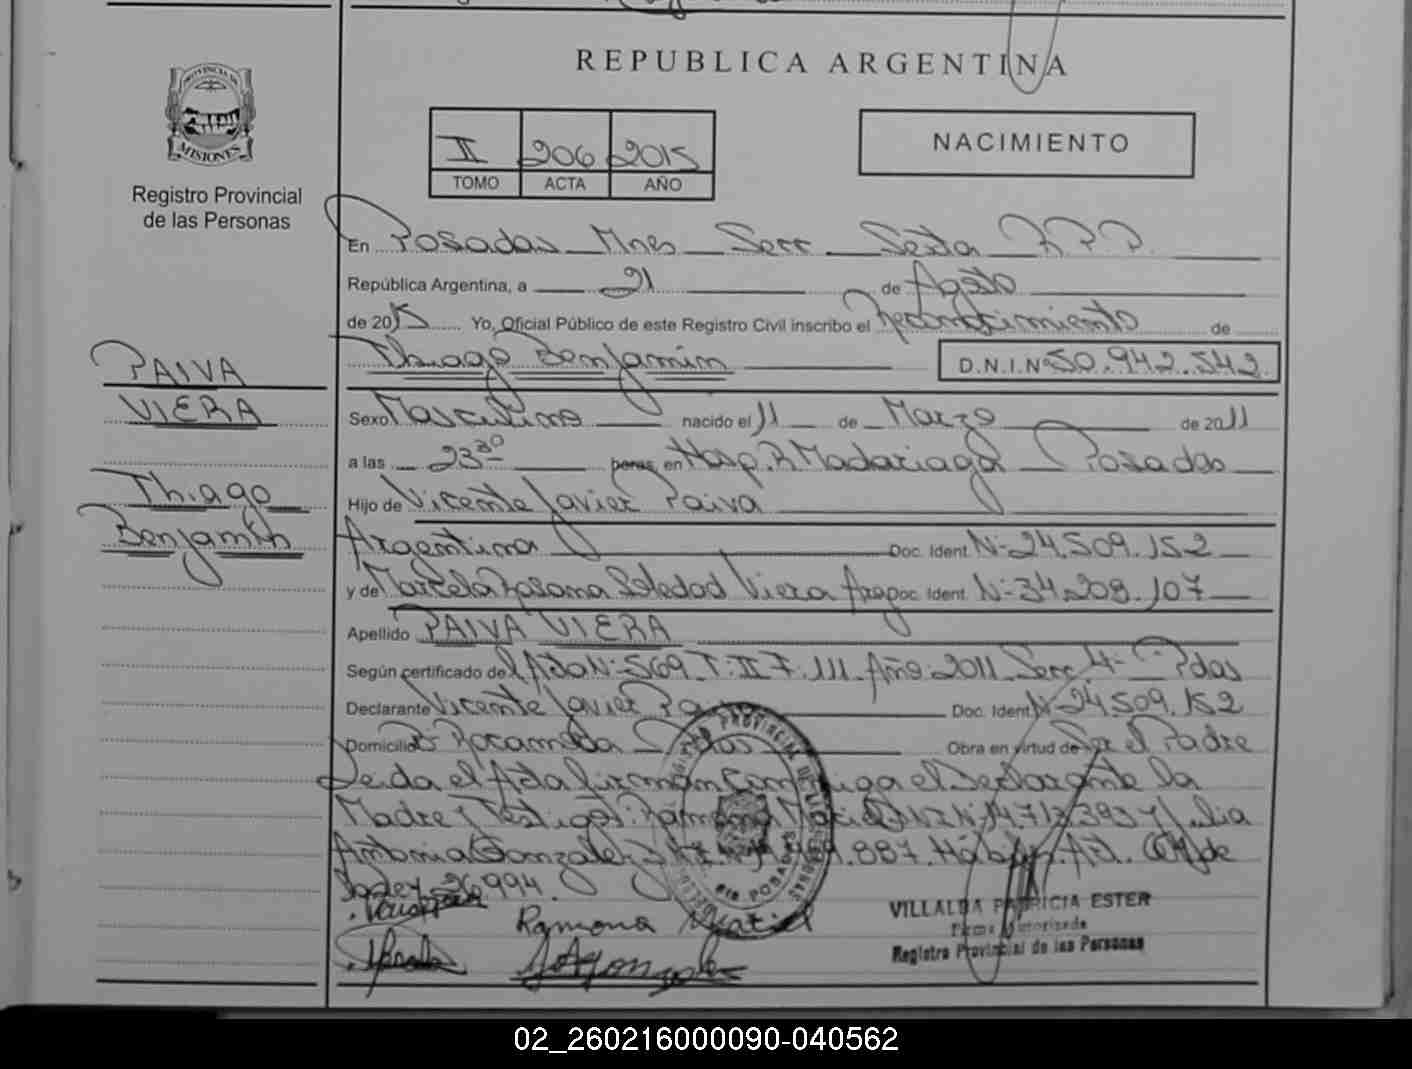 REPUBLICA ARGENTINA
PROVINCIA DE
MISIONES
Registro Provincial
de las Personas
II 206 2015
TOMO ACTA AÑO
NACIMIENTO
En Posadas Mnes Secc Sexta R.P.P.
República Argentina, a 21 de Agosto
de 2015 Yo, Oficial Público de este Registro Civil inscribo el Reconocimiento de
Thiago Benjamin D.N.I.Nº 50.942.542
PAIVA
VIERA
Thiago
Benjamín
Sexo Masculino nacido el 11 de Marzo de 2011
a las 23 30 horas, en Hosp. R. Madariaga Posadas
Hijo de Vicente Javier Paiva
Argentina Doc. Ident. Nº 24.509.152
y de Marcela Rosana Soledad Viera Arg Doc. Ident. Nº 34.209.107
Apellido PAIVA VIERA
Según certificado de l Acta Nº 569 T: II F. 111 Año 2011 Secc 4ª Pdas
Declarante Vicente Javier Pa Doc. Ident. Nº 24.509.152
Domicilio Bº Rocamora Obra en virtud de Ser el Padre
Leida el Acta firman Conmigo el Declarante la
Madre y Testigos: Ramona y Julia
Antonia Gonzalez .887. Háb
Ley 26.994.
Ramona
VILLALBA PATRICIA ESTER
Firma Autorizada
Registro Provincial de las Personas
02_260216000090-040562